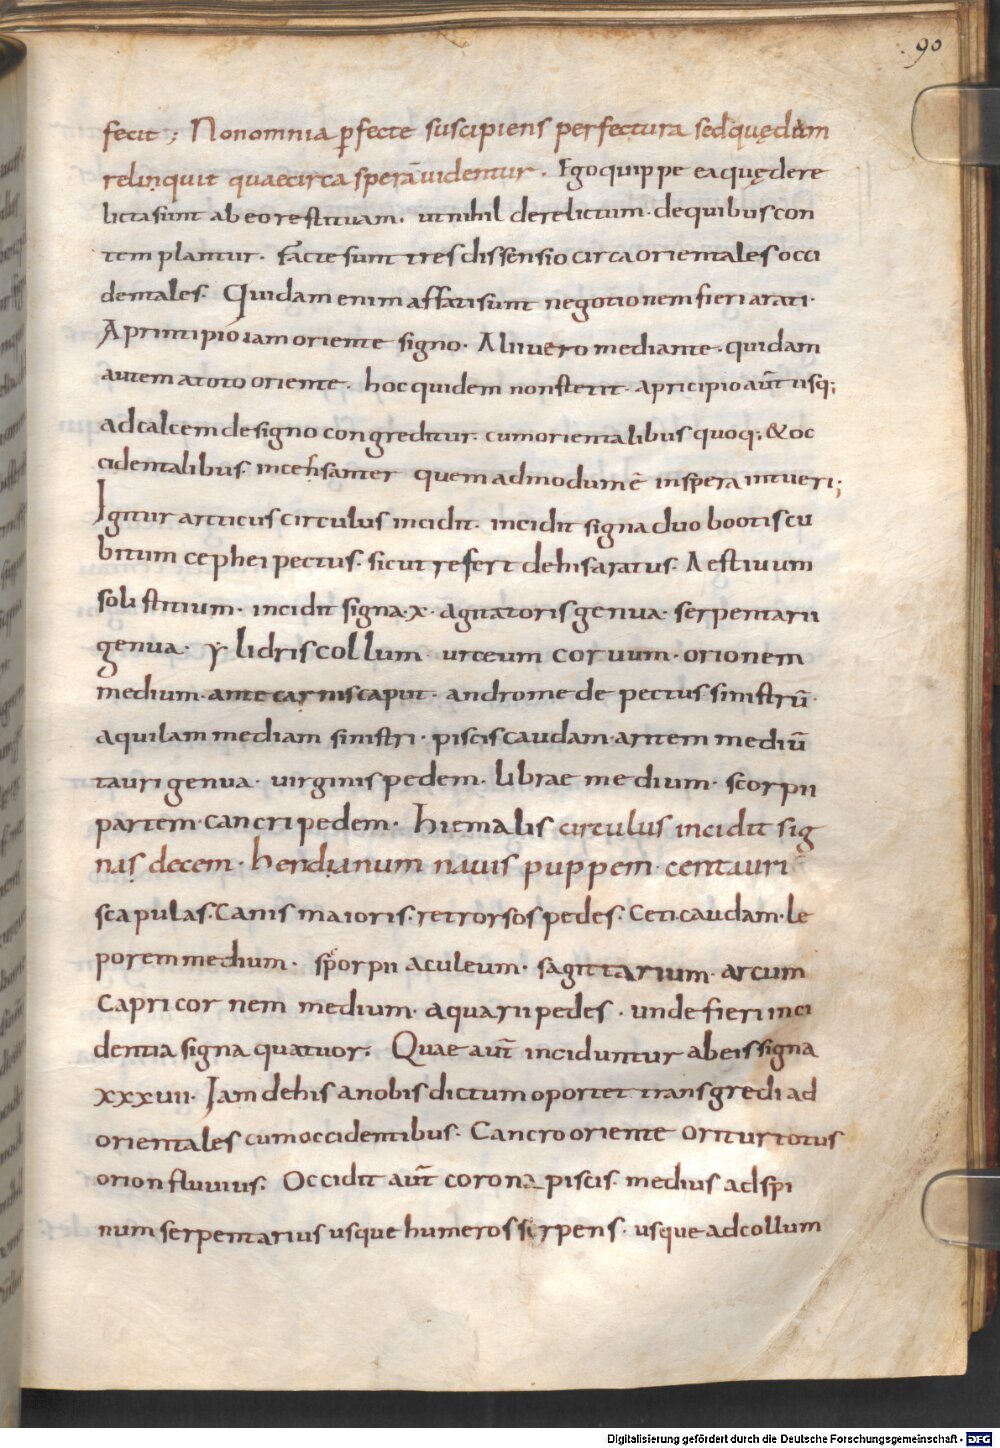 90
fecit ; Nonomnia ꝑfecte suscipiens perfectura sedquędam
relinquit quaecirca sperāuidentur . Egoquippe eaquędere
lictasunt abeorestituam . utnihil derelictum . dequibuscon
templantur . Factesunt tresdissensiocircaorientalesocci
dentales . Quidamenimaffatisunt negotionemfieriarati .
Aprintipioiamoriente signo . Aliiuero mediante . quidam
autematotooriente . hocquidem nonstetit . apricipioaut̄ usq;
adcalcemdesigno congreditur . cumorientalibus quoq; &oc
cidentalibus incessanter quemadmodumē inspera intueri ;
Igitur articuscirculus incidit . incidit signa duo bootiscu
bitum cephei pectus . sicut refert dehisaratus . Aestiuum
solistitium . incidit signa . x . agitatoris genua . serpentarii
genua . ylidriscollum urceum coruum . orionem
medium . antecarniscaput . andromede pectussinistrū .
aquilam mediam sinistri . pisciscaudam . aritem mediū
taurigenua . uirginispedem . librae medium . scorpii
partem . cancripedem . hiemalis circulus incidit sig
nas decem . heridianum nauis puppem . centauri
scapulas . Canis maioris . retrorsospedes . Ceti . caudam . le
poremmedium . sporpii aculeum . sagittarium . arcum
Capricornem medium . aquariipedes . undefieriinci
dentia signa quatuor . Quae aut̄ inciduntur abeissigna
xxxvii . Iamdehis anobisdictumoportet transgredi ad
orientales cumoccidentibus . Cancrooriente oriturtotus
orionfluuius . Occidit aut̄ corona piscis . medius adspi
numserpentarius usque humeros serpens . usqueadcollum
Digitalisierung gefördert durch die Deutsche Forschungsgemeinschaft - DFG